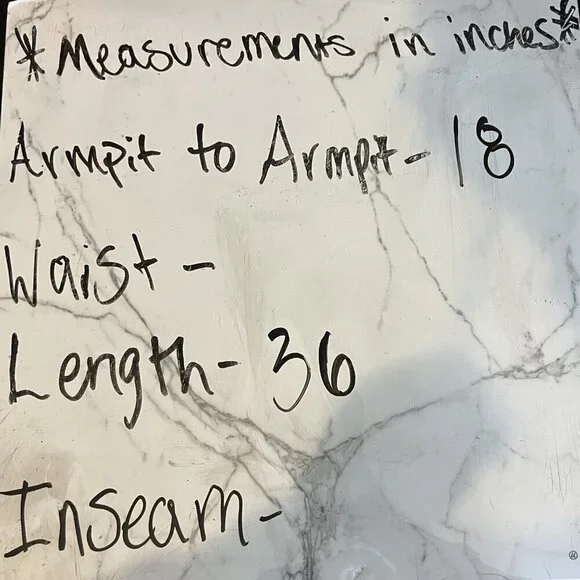 *Measurements in inches*
Armpit to Armpit- 18
Waist -
Length- 36
Inseam-